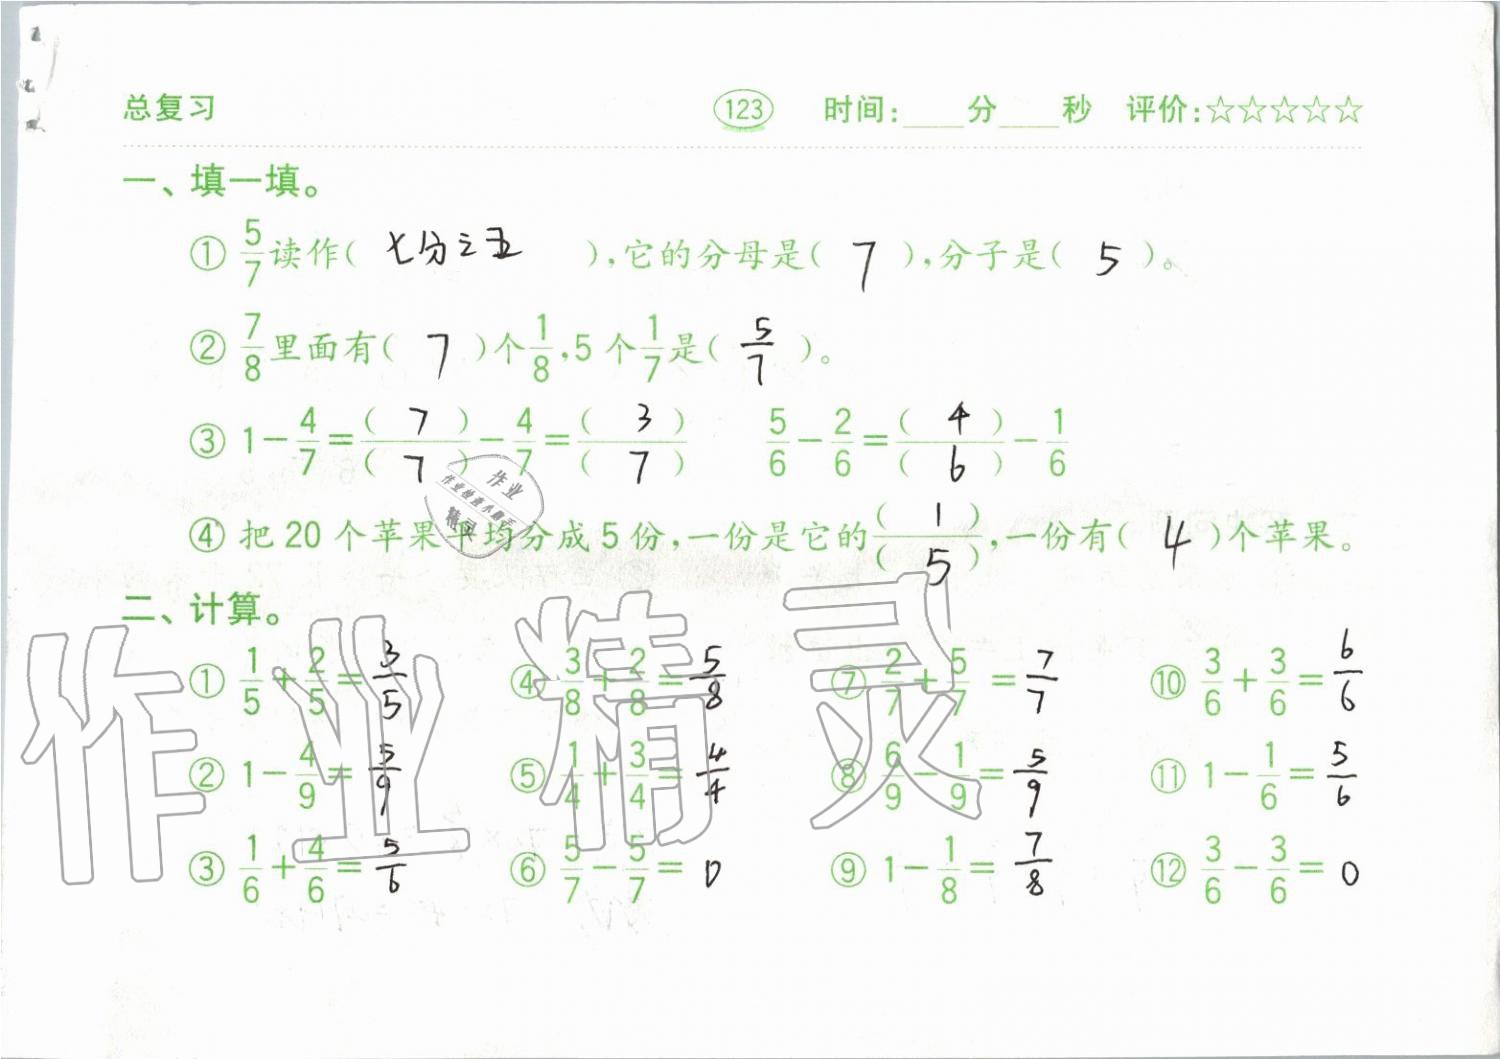 总复习 123 时间:____分____秒 评价:☆☆☆☆☆
一、填一填。
① 5/7读作( 七分之五 ),它的分母是( 7 ),分子是( 5 )。
② 7/8里面有( 7 )个1/8,5个1/7是( 5/7 )。
③ 1-4/7=( 7 )/( 7 )-4/7=( 3 )/( 7 ) 5/6-2/6=( 4 )/( 6 )-1/6
④ 把20个苹果平均分成5份,一份是它的( 1 )/( 5 ),一份有( 4 )个苹果。
二、计算。
① 1/5+2/5=3/5 ④ 3/8+2/8=5/8 ⑦ 2/7+5/7=7/7 ⑩ 3/6+3/6=6/6
② 1-4/9=5/9 ⑤ 1/4+3/4=4/4 ⑧ 6/9-1/9=5/9 ⑪ 1-1/6=5/6
③ 1/6+4/6=5/6 ⑥ 5/7-5/7=0 ⑨ 1-1/8=7/8 ⑫ 3/6-3/6=0
作业精灵
作业
作业检查小助手
精灵